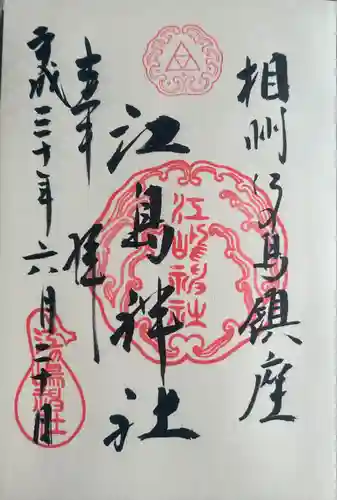 相州江の島鎮座
江島神社
奉拝
平成三十年六月二十日
江嶋神社